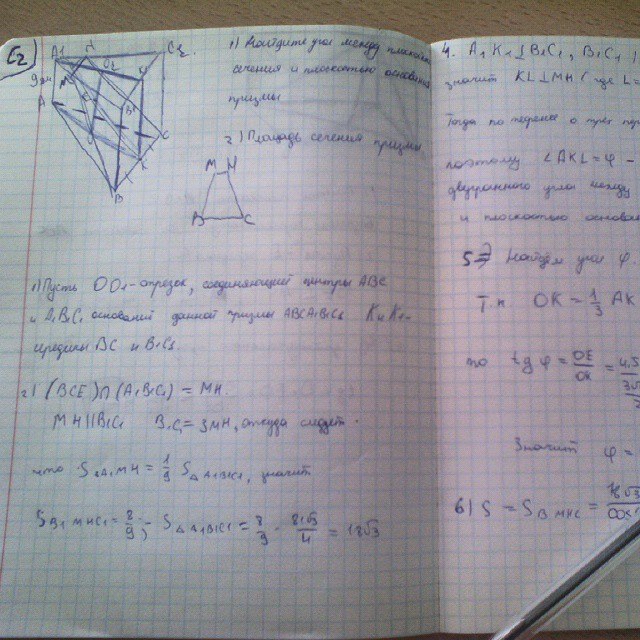 C2)
A1 H C1
M O1 K1
B1
A C
K
B
1) Найдите угол между плоскостью
сечения и плоскостью основания
призмы
2) Площадь сечения призмы
M H
B C
1) Пусть OO1 - отрезок, соединяющий центры ABC
и A1B1C1 оснований данной призмы ABCA1B1C1 K и K1 -
середины BC и B1C1.
2) (BCE)∩(A1B1C1) = MH.
MH||B1C1 B1C1 = 3MH, откуда следует
что S△A1MH = 1/9 S△A1B1C1, значит
SB1MHC1 = 8/9 S△A1B1C1 = 8/9 · 81√3/4 = 18√3
4. A1K1⊥B1C1, B1C1 ||
значит KL⊥MH где L =
Тогда по теореме о трех
поэтому ∠AKL = φ -
двугранного угла между
и плоскостью основан
5) Найдём угол φ.
Т.к OK = 1/3 AK
то tg φ = OE/OK = 4,5
Значит φ =
6) S = SBMHC = 18√3